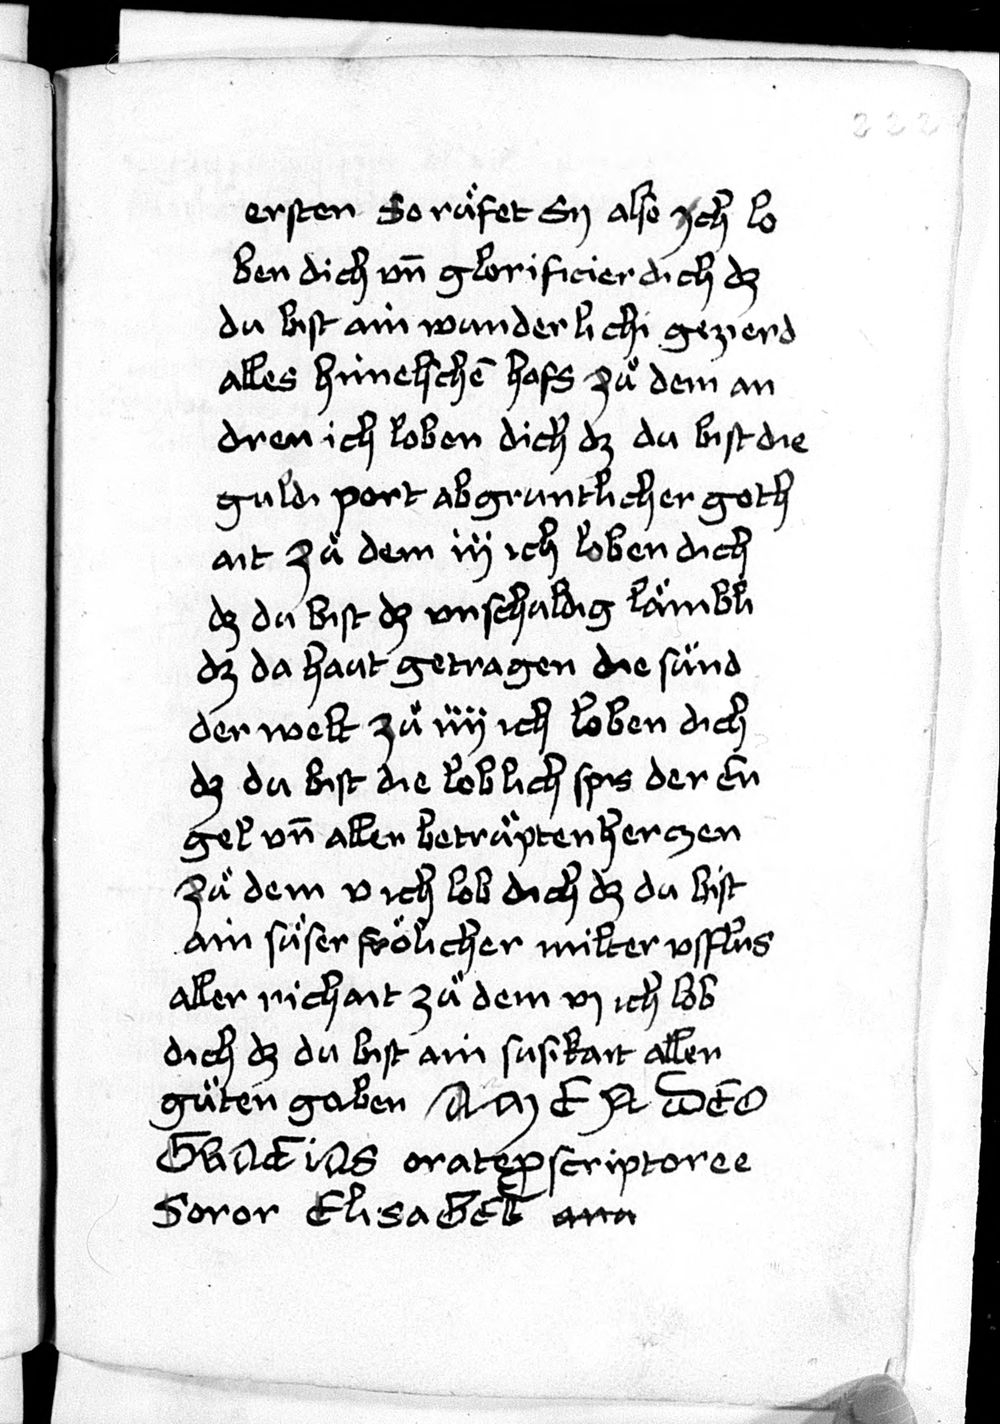 222
ersten So rüfet Sy also jch lo
ben dich vn̄ glorificier dich dz
du bist ain wunderlichi gezierd
alles himelschē hofs zů dem an
dren ich loben dich dz du bist die
guldi port abgruntlicher goth
ait zů dem iij ich loben dich
dz du bist dz vnschuldig lämbli
dz da haut getragen die sünd
der welt zů iiij ich loben dich
dz du bist die loblich spis der En
gel vn̄ aller betrüpten herczen
zů dem v ich lob dich dz du bist
ain süser frölicher milter vsflus
aller richait zů dem vj ich lob
dich dz du bist ain susikait aller
güten gaben AMEN DEO
GRACIAS orate ꝓ scriptoree
Soror ElisaBET